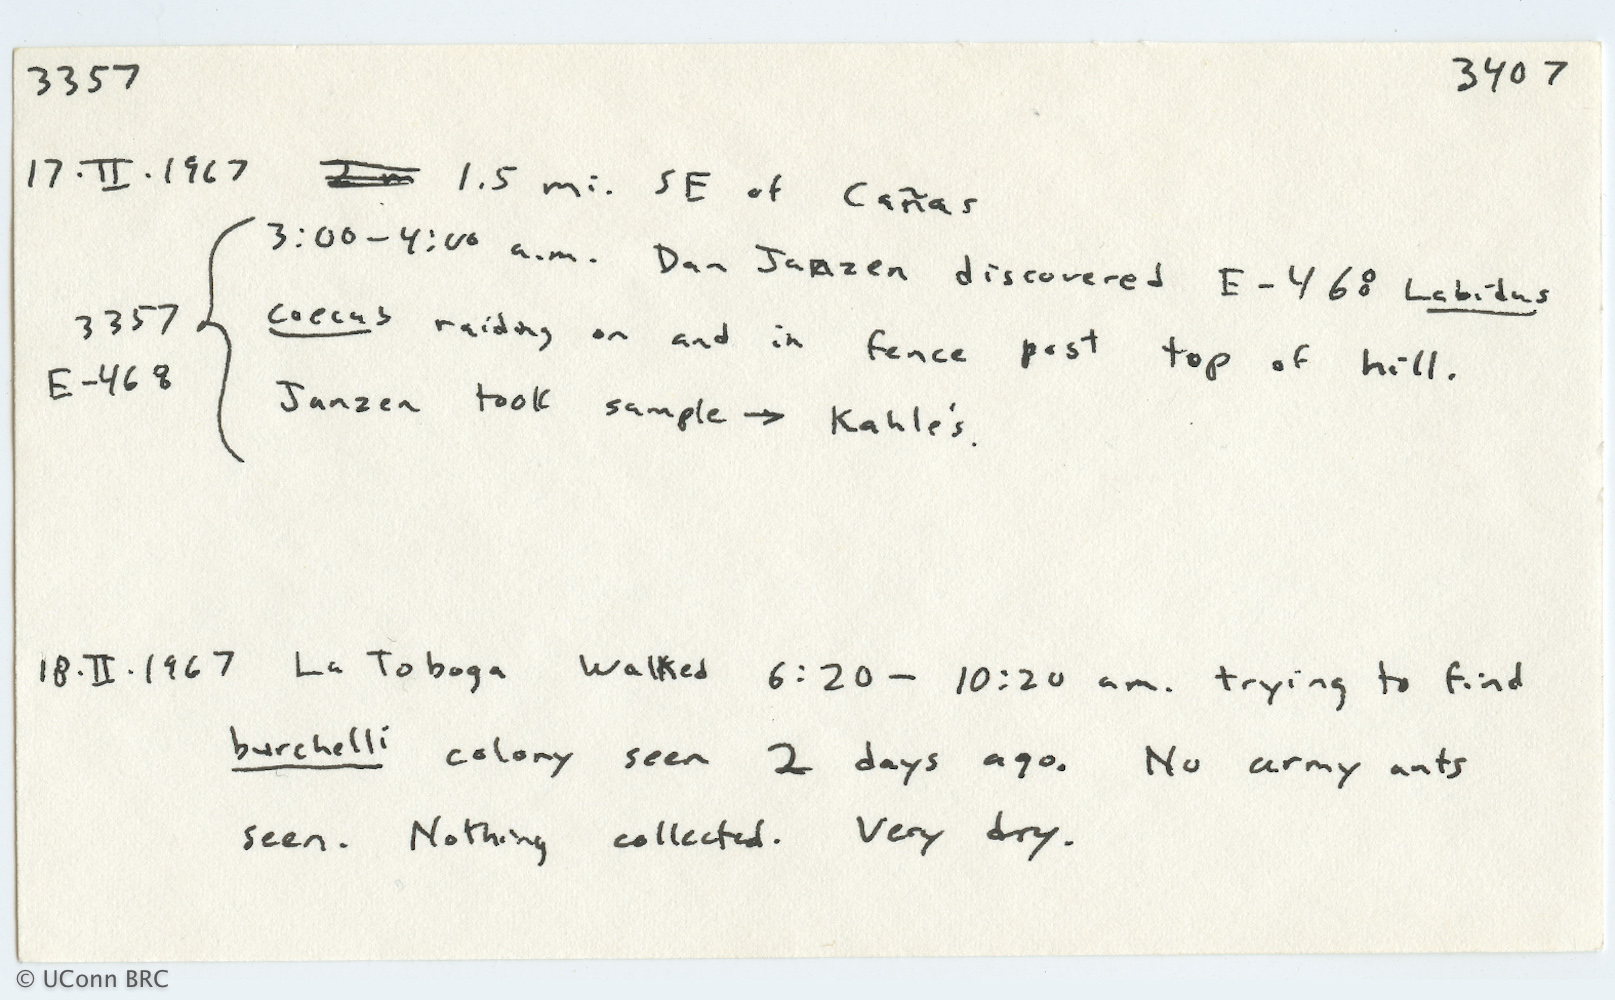 3357 3407
17.II.1967 1.5 mi. SE of Cañas
3:00-4:00 a.m. Dan Janzen discovered E-468 Labidus
3357 coecus raiding on and in fence post top of hill.
E-468 Janzen took sample → Kahle's.
18.II.1967 La Toboga Walked 6:20- 10:20 am. trying to find
burchelli colony seen 2 days ago. No army ants
seen. Nothing collected. Very dry.
© UConn BRC